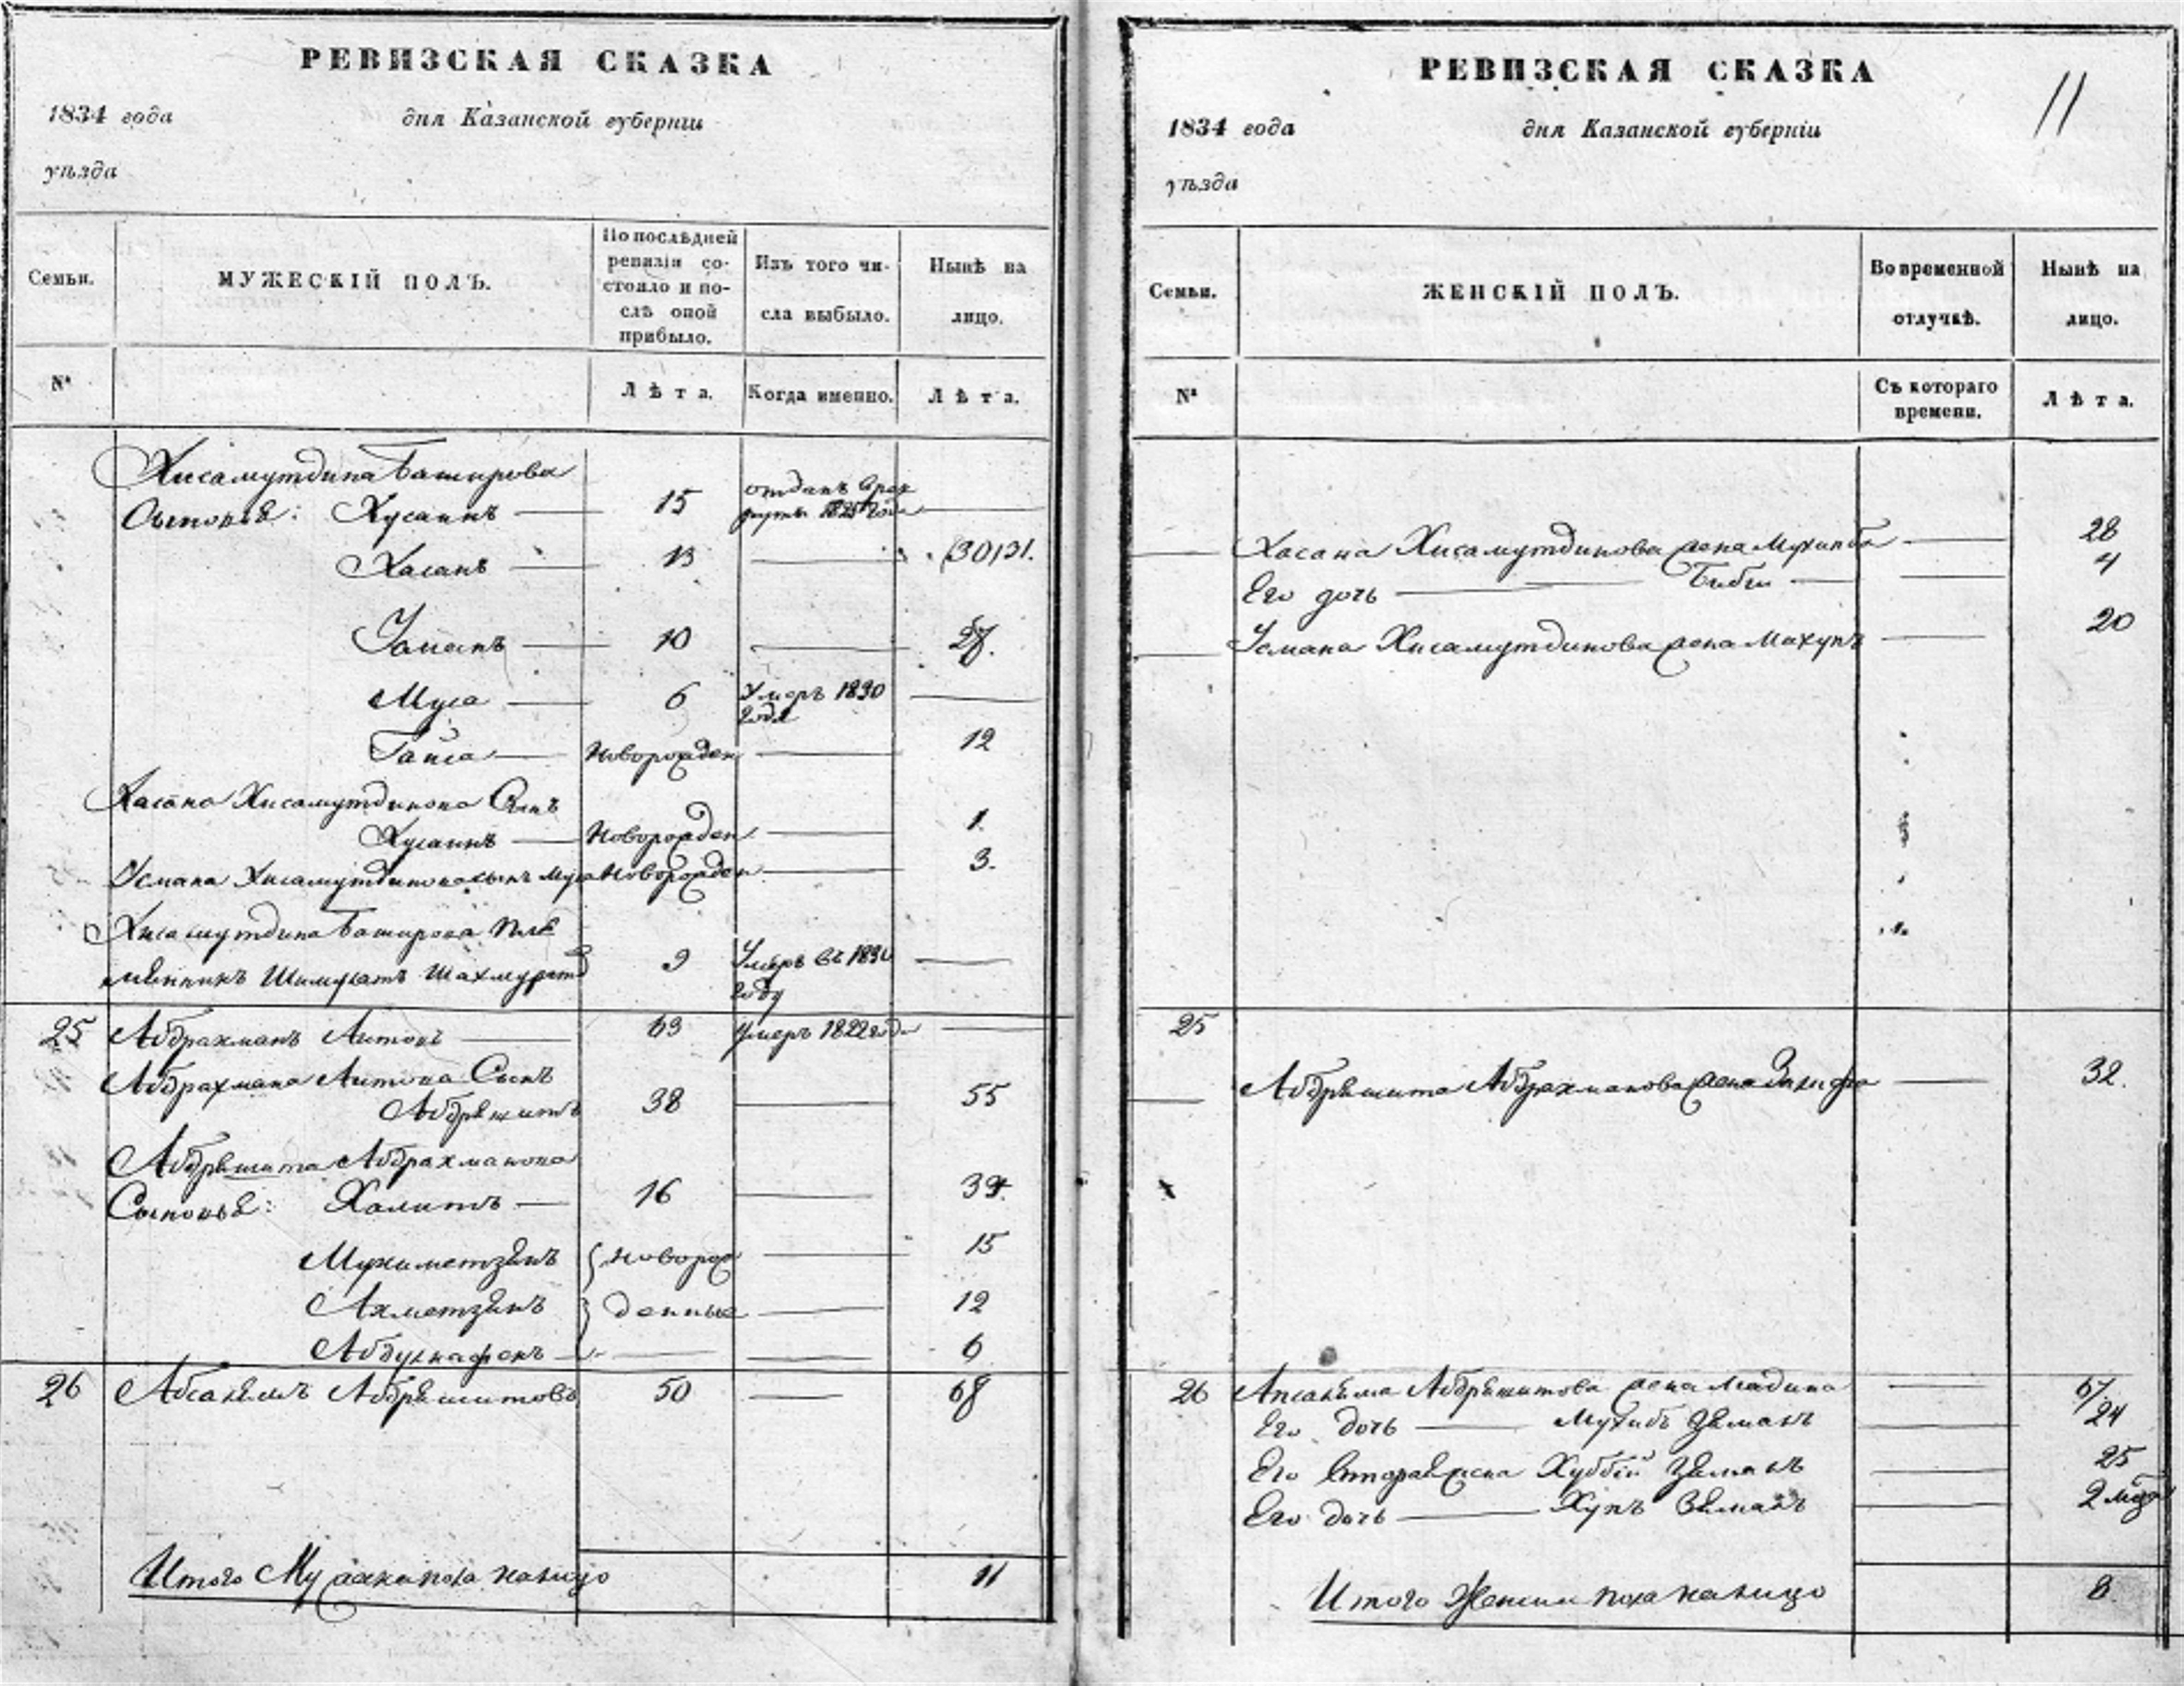 РЕВИЗСКАЯ СКАЗКА
1834 года дня Казанской губерніи
уѣзда
Семьи.
МУЖЕСКІЙ ПОЛЪ.
По послѣдней ревизіи со-
стояло и по-
слѣ оной
прибыло.
Изъ того чи-
сла выбыло.
Нынѣ на
лицо.
№
Лѣта.
Когда именно.
Лѣта.
Хисамутдина Баширова
Сыновья: Хусаинъ 15 отданъ рек
руты 1825 года
Хасанъ 13 (30)31.
Усманъ 10 27.
Муса 6 Умеръ 1830
года
Гайса Новорожден 12
Хасана Хисамутдинова Сынъ
Хусаинъ Новорожден 1.
Усмана Хисамутдинова сынъ Муса Новорожден 3.
Хисамутдина Баширова Пле
мянникъ Шахмуратъ 9 Умеръ въ
году
25 Абдрахманъ Аитовъ 63 умеръ 1822 года
Абдрахмана Аитова Сынъ
Абдряшитъ 38 55
Абдряшита Абдрахманова
Сыновья: Халитъ 16
Мухаметзянъ Новорож 15
Ахметзянъ денные 12
6
26 Абдряшитовъ 50 68
Итого Мужска пола налицо 11
РЕВИЗСКАЯ СКАЗКА
11
1834 года дня Казанской губерніи
уѣзда
Семьи.
ЖЕНСКІЙ ПОЛЪ.
Во временной
отлучкѣ.
Нынѣ на
лицо.
№
Съ котораго
времени.
Лѣта.
Хасана Хисамутдинова жена 28
Его дочь Биби 4
Усмана Хисамутдинова жена 20
25
Абдряшита Абдрахманова жена 32.
26 Абдряшитова жена Мадина 67
Его дочь Зяманъ 24
Его вторая жена Зяманъ 25
Его дочь Зяманъ 2
Итого Женска пола налицо 8